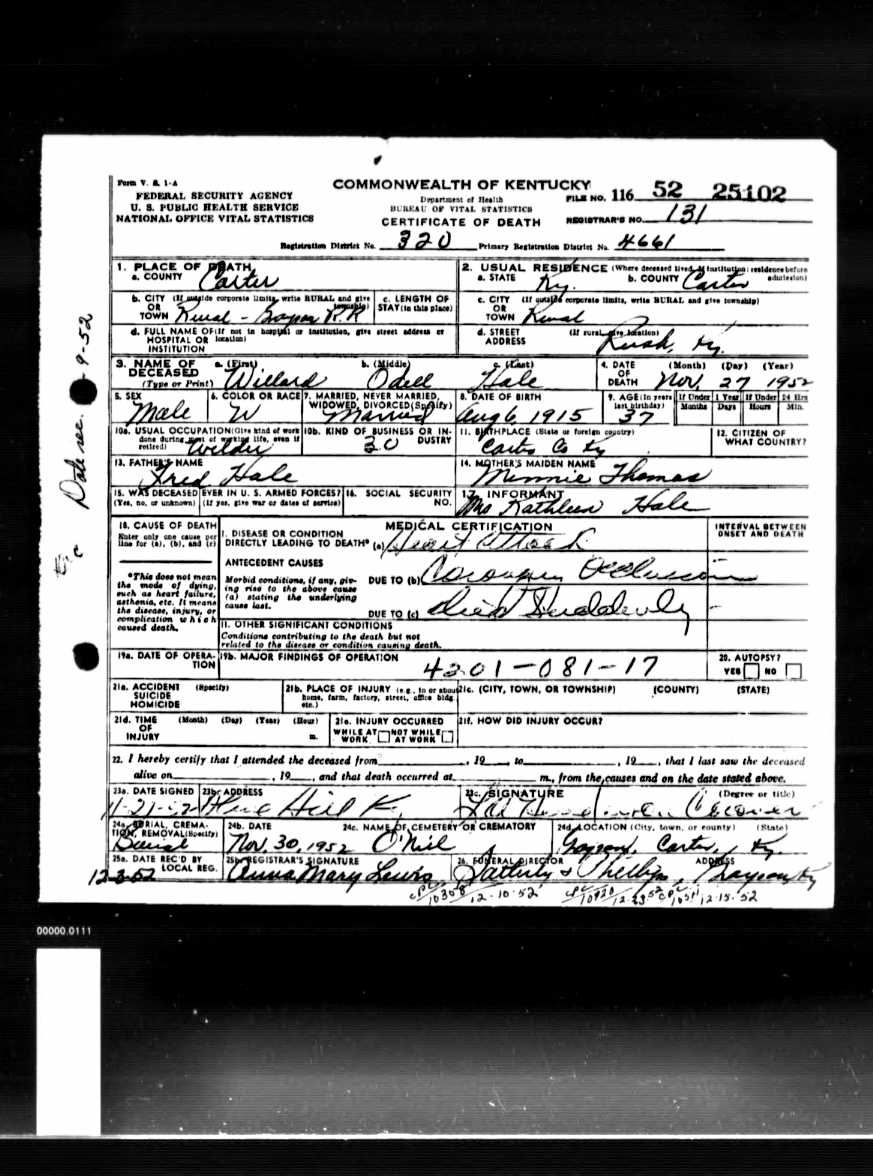 Form V. S. 1-A
FEDERAL SECURITY AGENCY
U. S. PUBLIC HEALTH SERVICE
NATIONAL OFFICE VITAL STATISTICS
COMMONWEALTH OF KENTUCKY
Department of Health
BUREAU OF VITAL STATISTICS
CERTIFICATE OF DEATH
FILE NO. 116 52 25102
REGISTRAR'S NO. 131
Registration District No. 320 Primary Registration District No. 4661
1. PLACE OF DEATH
a. COUNTY Carter
2. USUAL RESIDENCE (Where deceased lived. If institution: residence before admission)
a. STATE Ky. b. COUNTY Carter
b. CITY OR TOWN (If outside corporate limits, write RURAL and give township) Rural -
c. LENGTH OF STAY (in this place)
c. CITY OR TOWN (If outside corporate limits, write RURAL and give township) Rural
d. FULL NAME OF HOSPITAL OR INSTITUTION (If not in hospital or institution, give street address or location)
d. STREET ADDRESS (If rural, give location) Rush, Ky.
3. NAME OF DECEASED (Type or Print) a. (First) Willard b. (Middle) Odell c. (Last) Hale
4. DATE OF DEATH (Month) (Day) (Year) Nov. 27 1952
5. SEX Male
6. COLOR OR RACE W
7. MARRIED, NEVER MARRIED, WIDOWED, DIVORCED (Specify) Married
8. DATE OF BIRTH Aug 6, 1915
9. AGE (In years last birthday) 37 If Under 1 Year Months Days If Under 24 Hrs Hours Min.
10a. USUAL OCCUPATION (Give kind of work done during most of working life, even if retired) Welder
10b. KIND OF BUSINESS OR INDUSTRY 30
11. BIRTHPLACE (State or foreign country) Carter Co Ky
12. CITIZEN OF WHAT COUNTRY?
13. FATHER'S NAME Fred Hale
14. MOTHER'S MAIDEN NAME Minnie Thomas
15. WAS DECEASED EVER IN U. S. ARMED FORCES? (Yes, no, or unknown) (If yes, give war or dates of service)
16. SOCIAL SECURITY NO.
17. INFORMANT Mrs Kathleen Hale
18. CAUSE OF DEATH
Enter only one cause per line for (a), (b), and (c)
MEDICAL CERTIFICATION
INTERVAL BETWEEN ONSET AND DEATH
I. DISEASE OR CONDITION DIRECTLY LEADING TO DEATH* (a) Heart Attack
*This does not mean the mode of dying, such as heart failure, asthenia, etc. It means the disease, injury, or complication which caused death.
ANTECEDENT CAUSES
Morbid conditions, if any, giving rise to the above cause (a) stating the underlying cause last.
DUE TO (b) Coronary Occlusion
DUE TO (c) Died Suddenly
II. OTHER SIGNIFICANT CONDITIONS
Conditions contributing to the death but not related to the disease or condition causing death.
19a. DATE OF OPERATION
19b. MAJOR FINDINGS OF OPERATION
4201-081-17
20. AUTOPSY?
YES NO
21a. ACCIDENT SUICIDE HOMICIDE (Specify)
21b. PLACE OF INJURY (e.g., in or about home, farm, factory, street, office bldg. etc.)
21c. (CITY, TOWN, OR TOWNSHIP) (COUNTY) (STATE)
21d. TIME OF INJURY (Month) (Day) (Year) (Hour) m.
21e. INJURY OCCURRED
WHILE AT WORK NOT WHILE AT WORK
21f. HOW DID INJURY OCCUR?
22. I hereby certify that I attended the deceased from , 19 to , 19 , that I last saw the deceased
alive on , 19 , and that death occurred at m., from the causes and on the date stated above.
23a. DATE SIGNED
23b. ADDRESS
23c. SIGNATURE (Degree or title) Coroner
24a. BURIAL, CREMATION, REMOVAL (Specify) Burial
24b. DATE Nov. 30, 1952
24c. NAME OF CEMETERY OR CREMATORY
24d. LOCATION (City, town, or county) (State) Grayson, Carter, Ky.
25a. DATE REC'D BY LOCAL REG. 12-3-52
25b. REGISTRAR'S SIGNATURE Anna Mary Lewis
26. FUNERAL DIRECTOR ADDRESS Grayson Ky
12-10-52 12-15-52
Date rec. -9-52
00000.0111